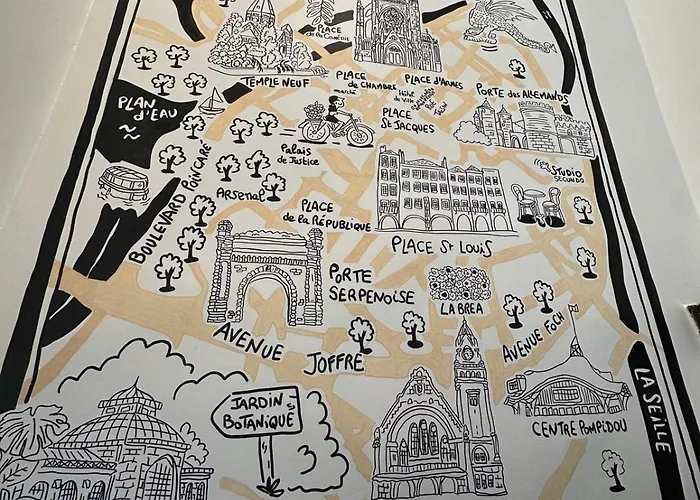 PLACE
de la COMÉDIE
TEMPLE NEUF
PLACE
de CHAMBRE
marché
PLACE d'ARMES
Hôtel
de Ville
PORTE des ALLEMANDS
PLAN
d'EAU
PLACE
St JACQUES
Palais
de Justice
STUDIO
SECUNDO
BOULEVARD POINCARÉ
Arsenal
PLACE
de la RÉPUBLIQUE
PLACE St LOUIS
PORTE
SERPENOISE
LA BREA
AVENUE JOFFRE
AVENUE FOCH
JARDIN
BOTANIQUE
CENTRE POMPIDOU
LA SEILLE